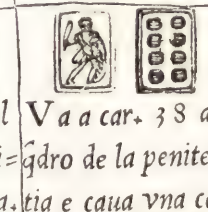 l V a a car. 38 a
= q̃dro de la penite
a. tia e caua vna co